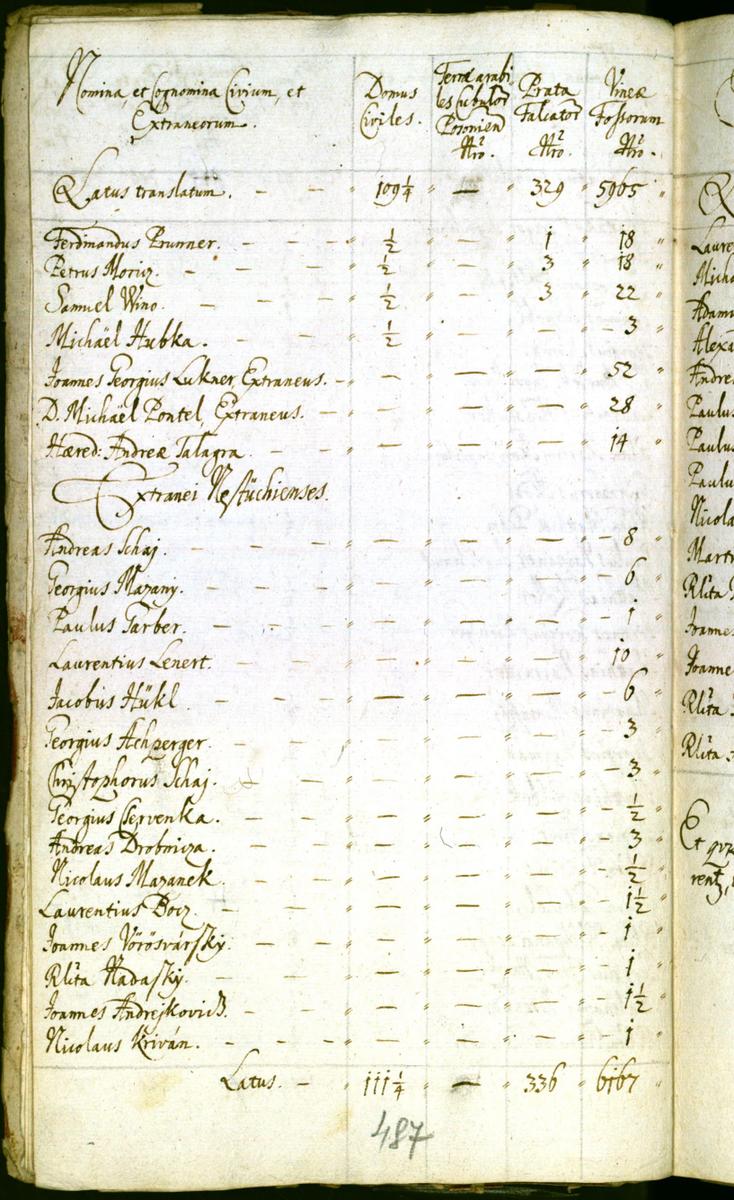 Nomina, et Cognomina Civium, et Extraneorum. Domus Civiles. Terræ arabiles Cubulor Posonien Nro. Prata Falcator Nro. Vineæ Fossorum Nro.
Latus translatum. — — 109¼ — 329 5965
Ferdinandus Prunner. — — ½ — 1 18
Petrus Moriz. — — ½ — 3 18
Samuel Wino. — — ½ — 3 22
Michäel Hubka. — — ½ — — 3
Joannes Georgius Lukner, Extraneus. — — — — 52
D. Michäel Pontel, Extraneus. — — — — 28
Hæred: Andreæ Talagra. — — — — — 14
Extranei Nestüchienses.
Andreas Schaj. — — — — — — 8
Georgius Mazany. — — — — — 6
Paulus Farber. — — — — — 1
Laurentius Lenert. — — — — — 10
Jacobus Hükl — — — — — 6
Georgius Achperger. — — — — — 3
Christophorus Schaj. — — — — — 3
Georgius Cservenka. — — — — — ½
Andreas Drobnicza. — — — — — 3
Nicolaus Mazanek. — — — — — ½
Laurentius Bocz. — — — — — 1½
Joannes Vörösvársky. — — — — — 1
Rlta Nadasky. — — — — — 1
Joannes Andrejkovich. — — — — — 1½
Nicolaus Kriván. — — — — — 1
Latus. — 111¼ — 336 6167
487
Michä
Adamu
Alexa
Andre
Paulus
Paulus
Paulus
Nicola
Mart
Rlta
Joanne
Joanne
Rlta
Rlta